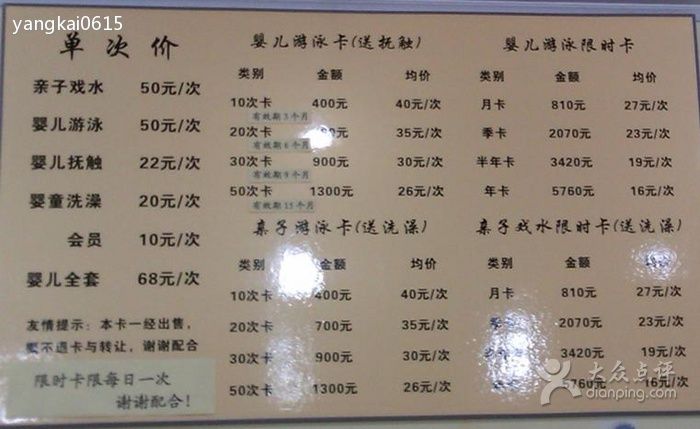 yangkai0615
单次价
亲子戏水 50元/次
婴儿游泳 50元/次
婴儿抚触 22元/次
婴童洗澡 20元/次
会员 10元/次
婴儿全套 68元/次
友情提示：本卡一经出售，
不退卡与转让，谢谢配合
限时卡限每日一次
谢谢配合！
婴儿游泳卡(送抚触)
类别 金额 均价
10次卡 400元 40元/次
有效期3个月
20次卡 35元/次
有效期6个月
30次卡 900元 30元/次
有效期9个月
50次卡 1300元 26元/次
有效期15个月
亲子游泳卡(送洗澡)
类别 金额 均价
10次卡 400元 40元/次
20次卡 700元 35元/次
30次卡 900元 30元/次
50次卡 1300元 26元/次
婴儿游泳限时卡
类别 金额 均价
月卡 810元 27元/次
季卡 2070元 23元/次
半年卡 3420元 19元/次
年卡 5760元 16元/次
亲子戏水限时卡(送洗澡)
类别 金额 均价
月卡 810元 27元/次
2070元 23元/次
3420元 19元/次
5760元 16元/次
大众点评
dianping.com